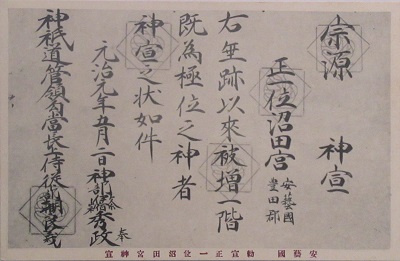 宗源　神宣
正一位沼田宮
安藝國
豊田郡
右無跡以來被増一階
既為極位之神者
神宣之状如件
元治元年五月二日神部
秀政
奉
神祇道管領勾當長侍従
安藝國　勅宣正一位沼田宮神宣